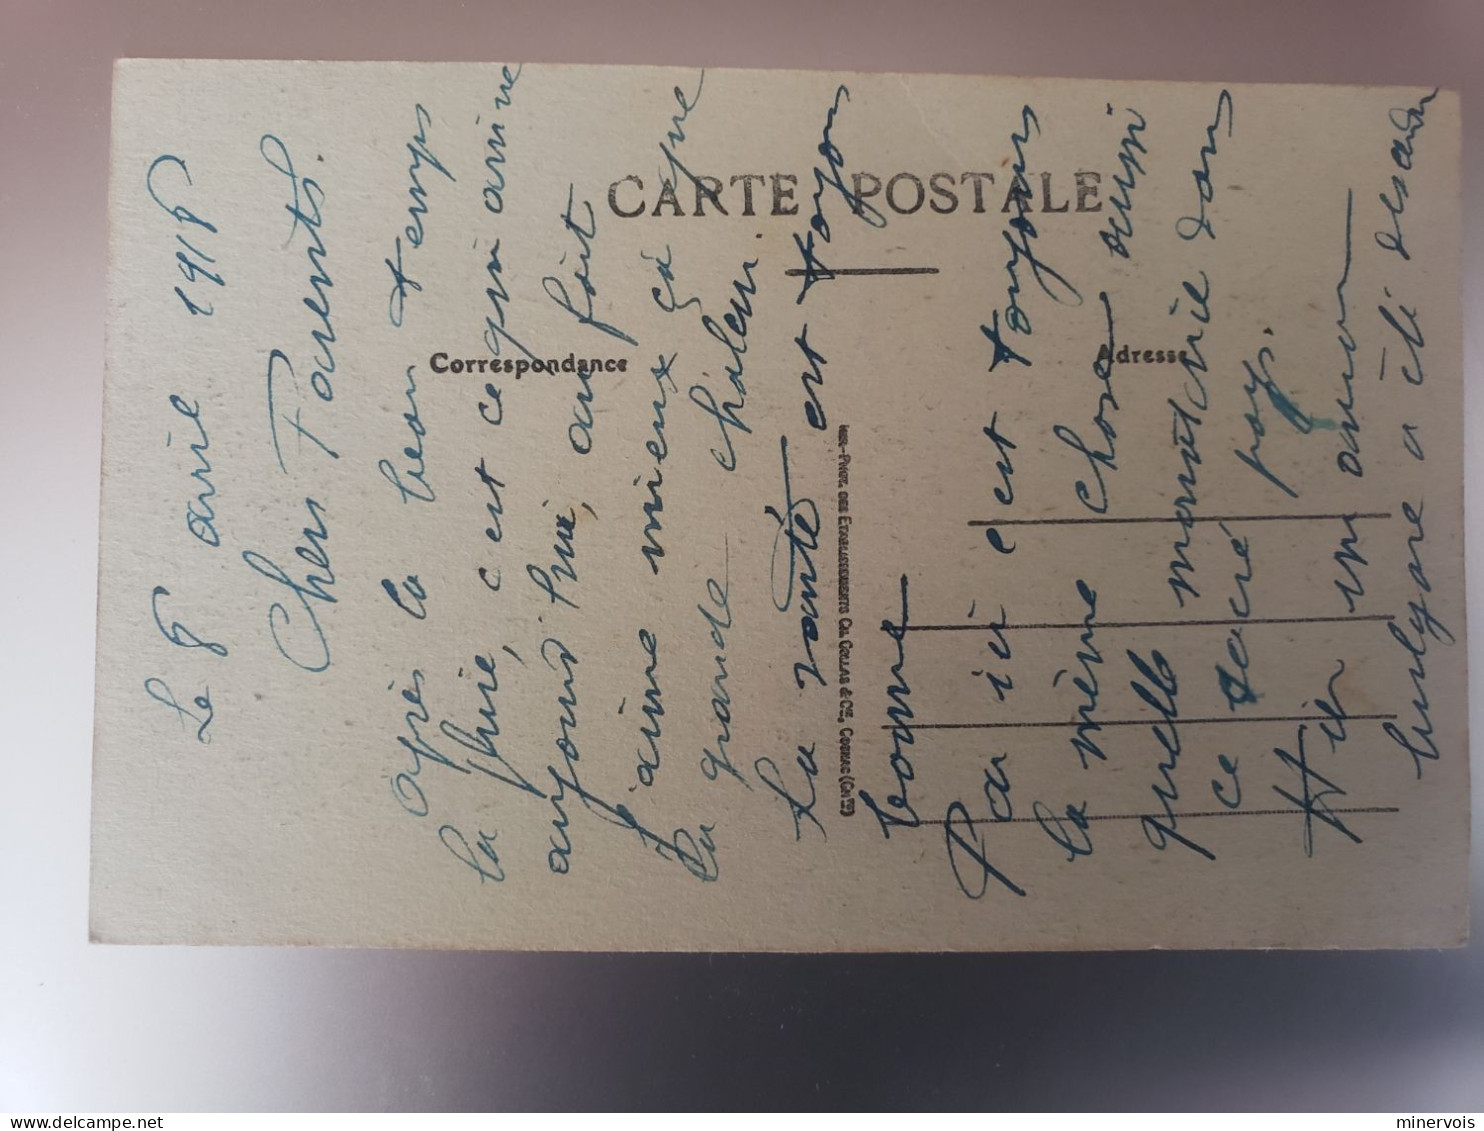 CARTE POSTALE
Correspondance
Adresse
IMP.-PHOT. DES ETABLISSEMENTS CH. COLLAS & Cie, COGNAC (Chte)
Le 8 avril 1918
Chers Parents.
après le beau temps
la pluie, c est ce qui arrive
aujourd'hui, au fait
j'aime mieux ça que
la grande chaleur.
La santé est toujours
bonne
Par ici c est toujours
la même chose aussi
quelle monotonie dans
ce sacré pays.
Hier un avion
bulgare a été descendu
minervois